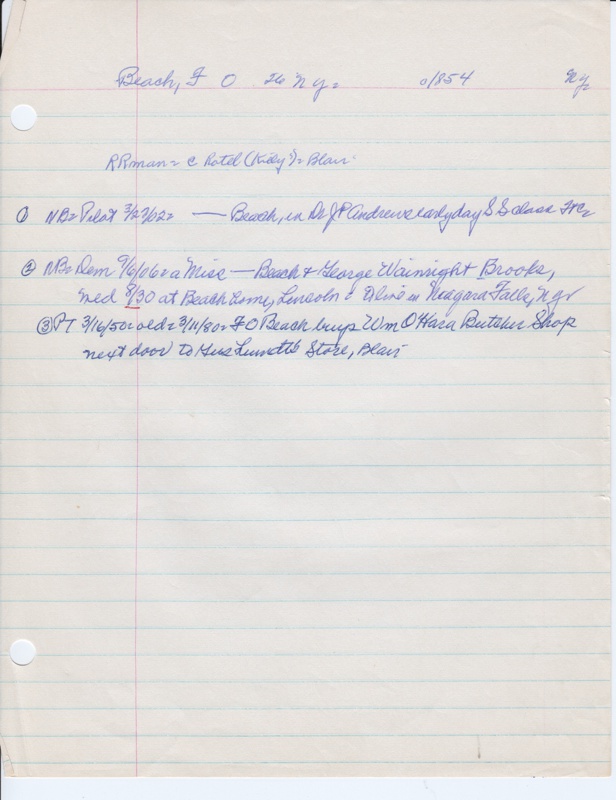 Beach, F O 26 N Y= o/854 N Y=
RRman= c hotel (Kidy?)= Blair
① NB= Pilot 3/27/02= — Beach, in Dr J P Andrews early day S S class
② NB= Dem 9/6/06= a Misc — Beach & George Wainright Brooks,
wed 8/30 at Beach home, Lincoln & alive in Niagara Falls, N Y
③ PT 3/16/50= old= 3/11/80= F O Beach buys Wm O'Hara Butcher Shop
next door to Gus Store, Blair